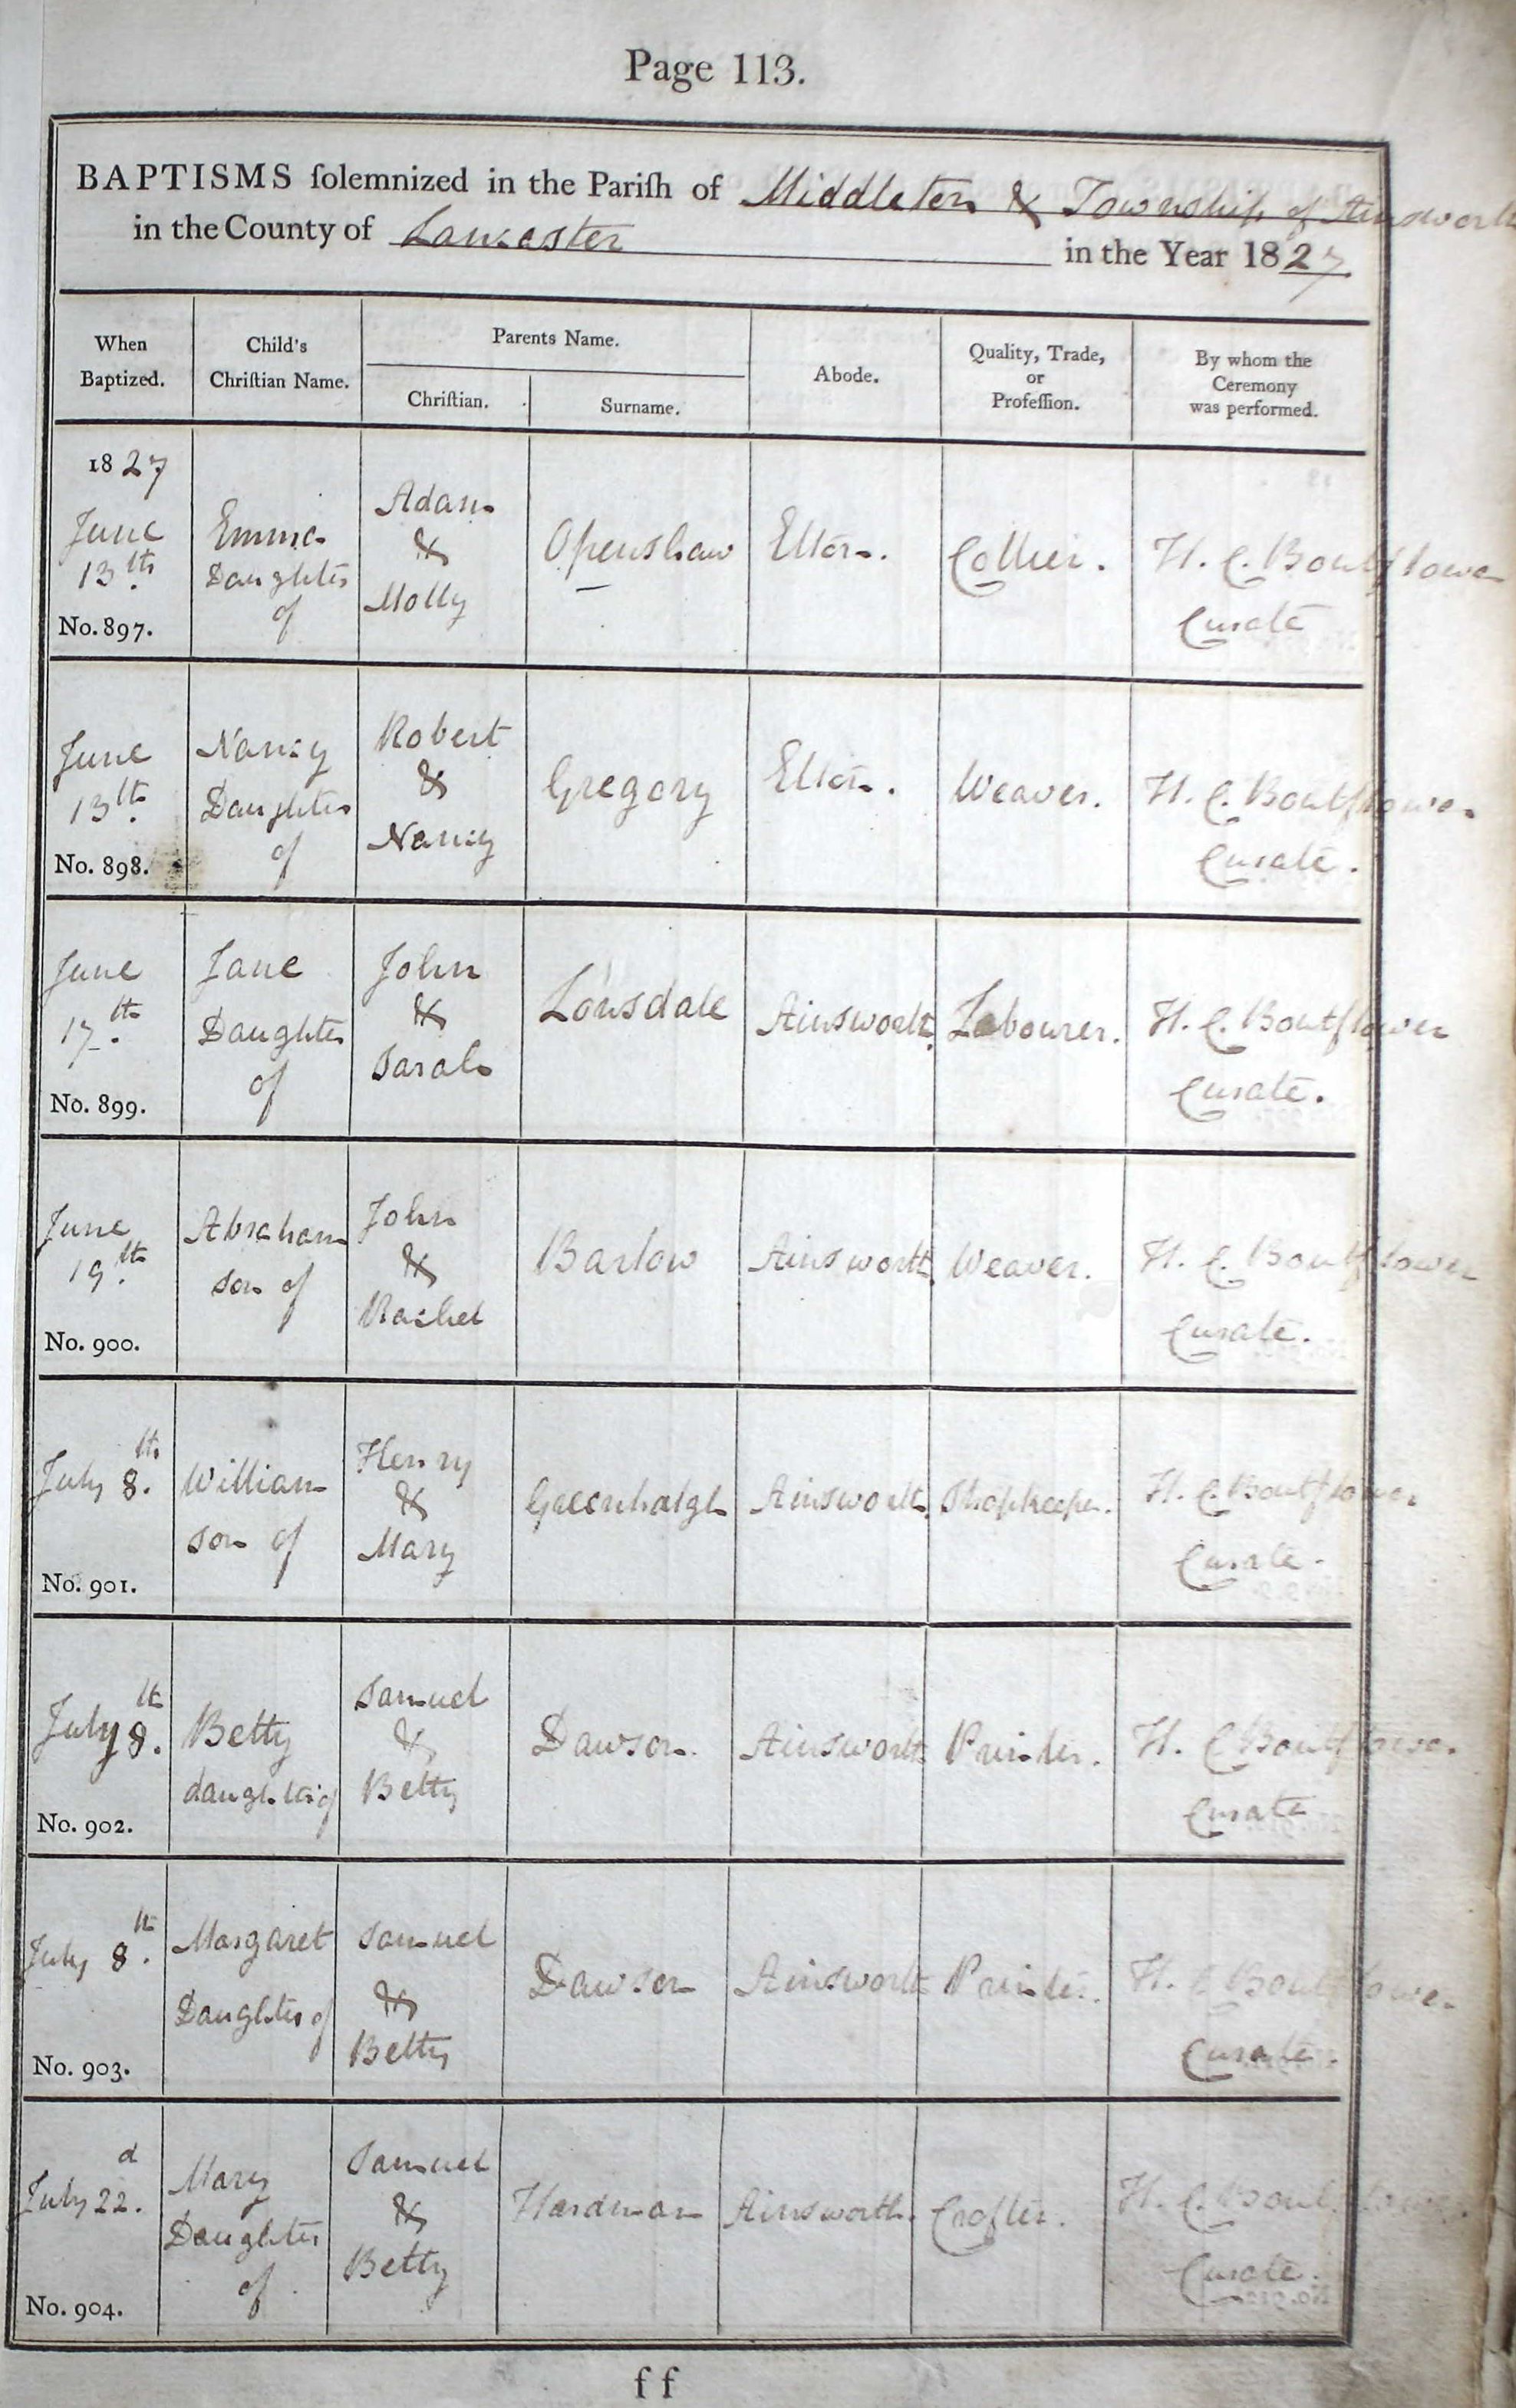 Page 113.
BAPTISMS ſolemnized in the Pariſh of Middleton & Township of Ainsworth
in the County of Lancaster in the Year 1827
When Baptized.
Child's Chriſtian Name.
Parents Name.
Chriſtian.
Surname.
Abode.
Quality, Trade, or Profeſſion.
By whom the Ceremony was performed.
1827
June 13th.
No. 897.
Emma Daughter of
Adam & Molly
Openshaw
Elton.
Collier.
H. C. Boutflower Curate
June 13th.
No. 898.
Nancy Daughter of
Robert & Nancy
Gregory
Elton.
Weaver.
H. C. Boutflower Curate.
June 17th.
No. 899.
Jane Daughter of
John & Sarah
Lonsdale
Ainsworth.
Labourer.
H. C. Boutflower Curate.
June 19th.
No. 900.
Abraham son of
John & Rachel
Barlow
Ainsworth.
Weaver.
H. C. Boutflower Curate.
July 8th.
No. 901.
William son of
Henry & Mary
Greenhalgh
Ainsworth.
Shopkeeper.
H. C. Boutflower Curate.
July 8th.
No. 902.
Betty daughter of
Samuel & Betty
Dawson.
Ainsworth
Printer.
H. C. Boutflower Curate
July 8th.
No. 903.
Margaret Daughter of
Samuel & Betty
Dawson
Ainsworth
Printer.
H. C. Boutflower Curate.
July 22d.
No. 904.
Mary Daughter of
Samuel & Betty
Hardman
Ainsworth.
Crofter.
H. C. Boutflower Curate.
f f